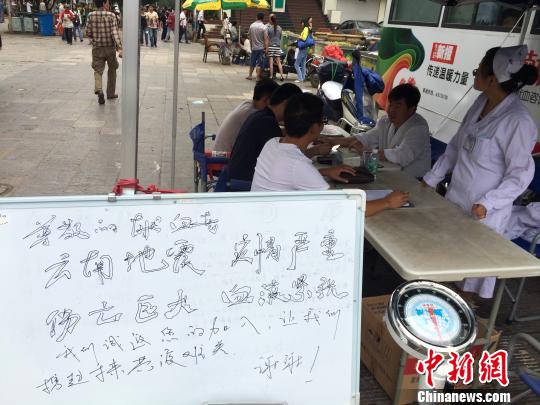 尊敬的献血者
云南地震 灾情严重
伤亡巨大 血液紧张
我们诚邀您的加入，让我们
携起手来共渡难关 谢谢！
传递温暖力量
中新网
www.chinanews.com